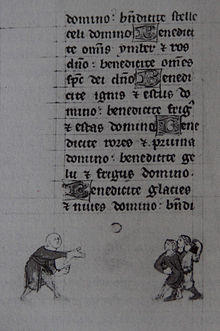 domino: bn̄dicite stelle
celi domino Benedi
cite om̄is ymber & ros
dn̄o: benedicite om̄es
sp̄c dei dn̄o Benedi
cite ignis & estus do
mino: benedicite frig᷒
& estas domino Bene
dicite rores & pruina
domino: benedicite ge
lu & frigus domino.
Benedicite glacies
& niues domino: bn̄di